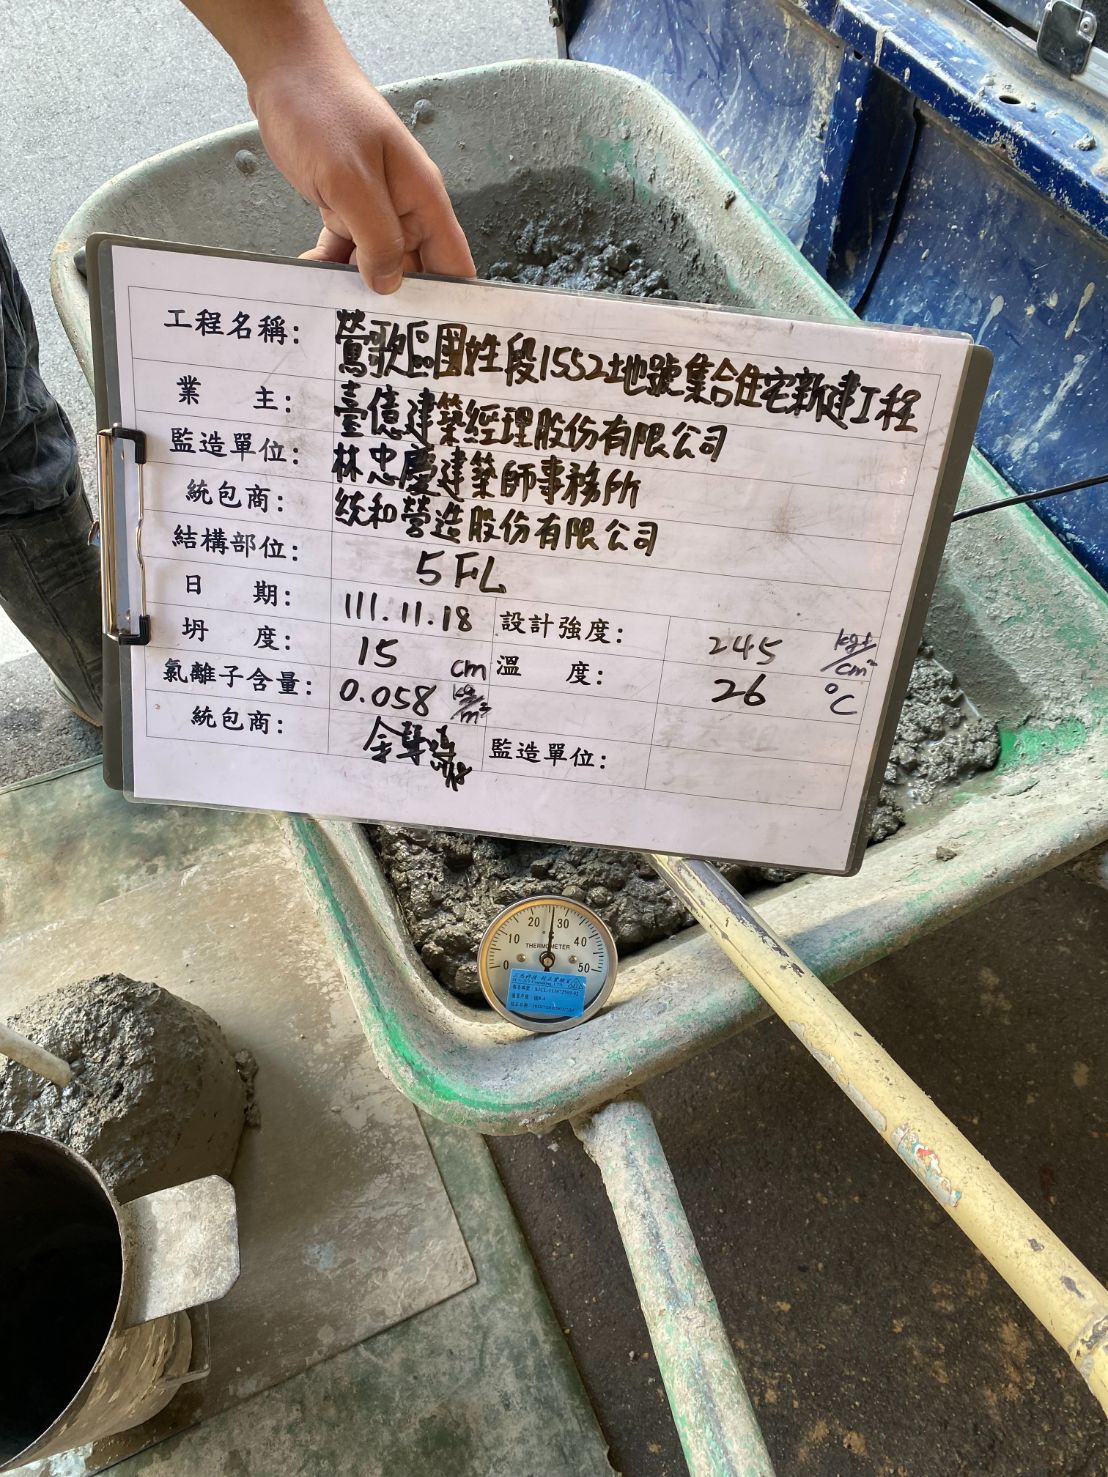 工程名稱: 鶯歌區國姓段1552地號集合住宅新建工程
業 主: 臺億建築經理股份有限公司
監造單位: 林忠慶建築師事務所
統包商: 統和營造股份有限公司
結構部位: 5FL
日 期: 111.11.18 設計強度: 245 kgf/cm²
坍 度: 15 cm 溫 度: 26 ℃
氯離子含量: 0.058 kg/m³
統包商: 監造單位:
0 10 20 30 40 50
THERMOMETER